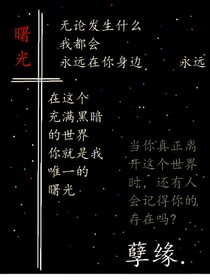 曙
光
无论发生什么
我都会
永远在你身边 永远
在这个
充满黑暗
的世界
你就是我
唯一的
曙光
当你真正离
开这个世界
时，还有人
会记得你的
存在吗?
孽缘.